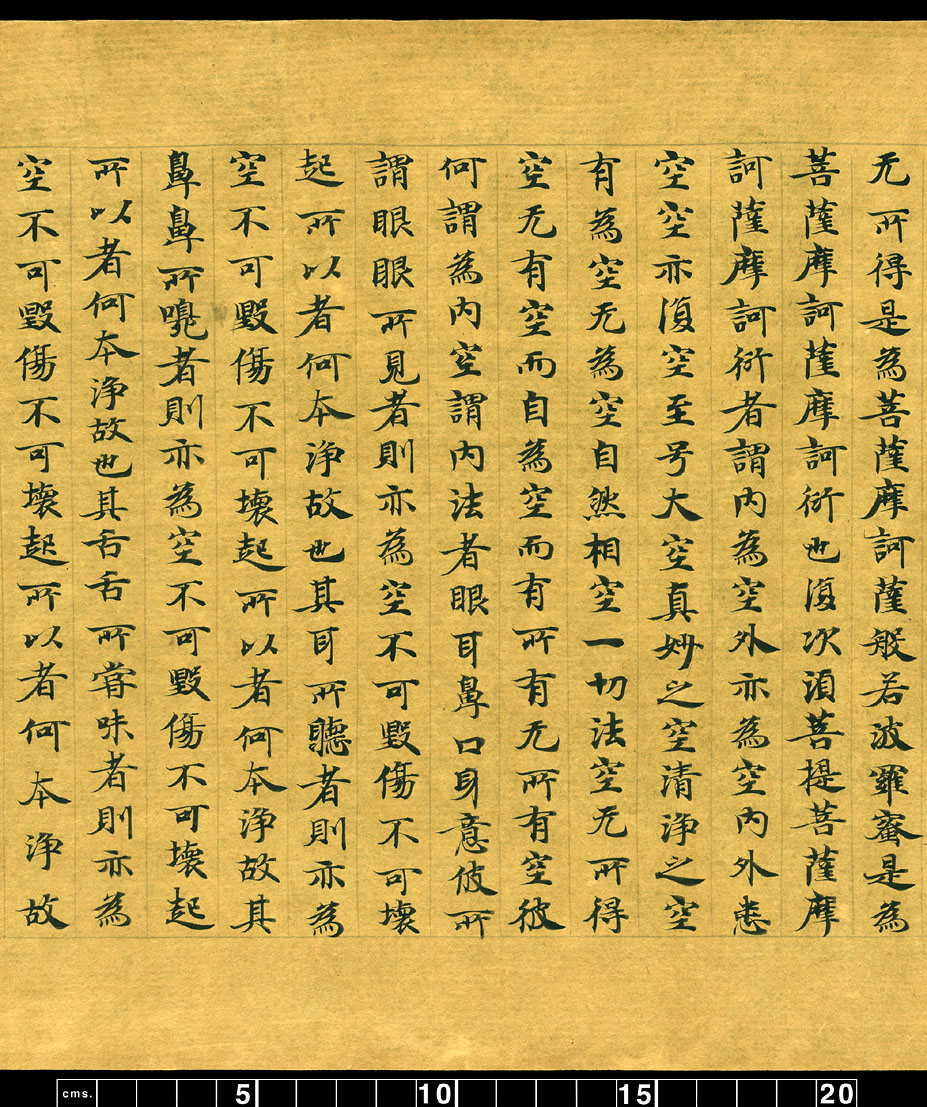 无所得是為菩薩摩訶薩般若波羅蜜是為
菩薩摩訶薩摩訶衍也復次須菩提菩薩摩
訶薩摩訶衍者謂內為空外亦為空內外悉
空空亦復空至号大空真妙之空清淨之空
有為空无為空自然相空一切法空无所得
空无有空而自為空而有所有无所有空彼
何謂為內空謂內法者眼耳鼻口身意彼所
謂眼眼所見者則亦為空不可毀傷不可壞
起所以者何本淨故也其耳所聽者則亦為
空不可毀傷不可壞起所以者何本淨故其
鼻鼻所嗅者則亦為空不可毀傷不可壞起
所以者何本淨故也其舌舌所甞味者則亦為
空不可毀傷不可壞起所以者何本淨故
cms. 5 10 15 20